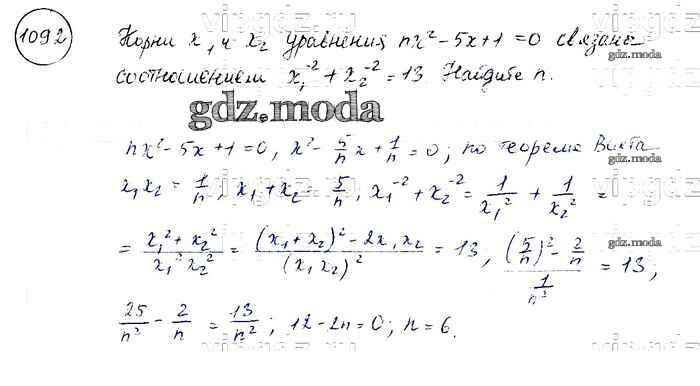 1092 Корни x₁ и x₂ уравнения nx² - 5x + 1 = 0 связаны
соотношением x₁⁻² + x₂⁻² = 13 Найдите n.
gdz.moda
nx² - 5x + 1 = 0, x² - 5/n x + 1/n = 0; по теореме Виета
x₁x₂ = 1/n, x₁ + x₂ = 5/n, x₁⁻² + x₂⁻² = 1/x₁² + 1/x₂² =
= (x₁² + x₂²)/(x₁² x₂²) = ((x₁ + x₂)² - 2x₁x₂)/(x₁x₂)² = 13, ((5/n)² - 2/n)/(1/n²) = 13;
25/n² - 2/n = 13/n²; 12 - 2n = 0; n = 6.